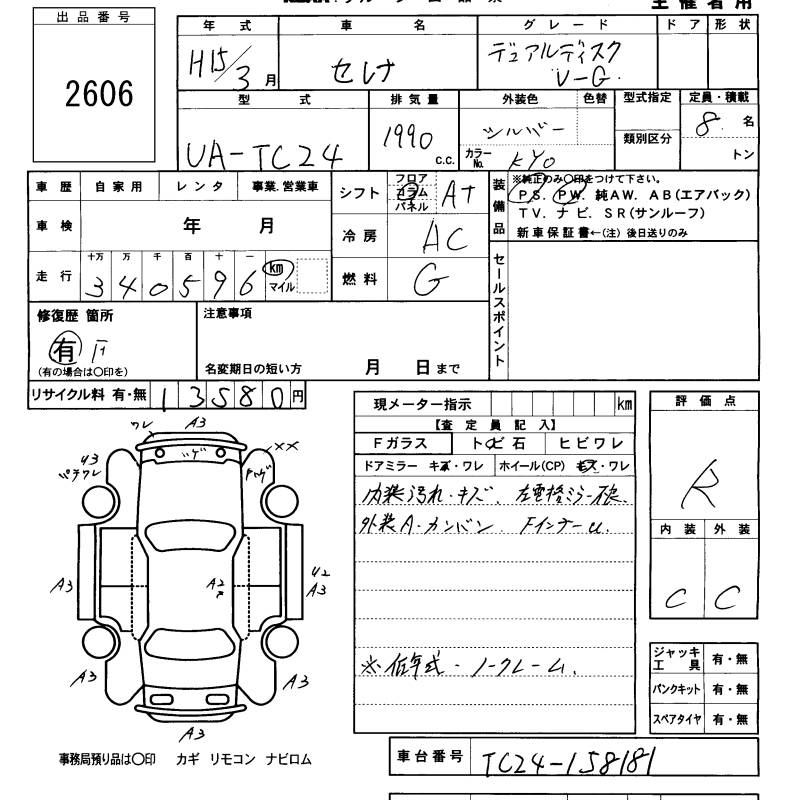 出品番号
2606
年式 車名 グレード ドア 形状
H15/3月 セレナ デュアルディスク
V-G
型式 排気量 外装色 色替 型式指定 定員・積載
UA-TC24 1990 c.c. シルバー 類別区分 8名
カラーNo. KY0 トン
車歴 自家用 レンタ 事業.営業車
車検 年 月
走行 十万 万 千 百 十 一
340596 km マイル
シフト フロア コラム パネル AT
冷房 AC
燃料 G
装備品
※純正のみ〇印をつけて下さい。
PS. PW. 純AW. AB(エアバック)
TV. ナビ. SR(サンルーフ)
新車保証書←(注) 後日送りのみ
セールスポイント
修復歴 箇所
有
(有の場合は〇印を)
注意事項
名変期日の短い方 月 日まで
リサイクル料 有・無 13580円
現メーター指示 km
【査定員記入】
Fガラス トビ石 ヒビワレ
ドアミラー キズ・ワレ ホイール(CP) キズ・ワレ
内装汚れ・キズ. 左電格ミラー破.
外装A・カンバン. FインナーU.
※低年式・ノークレーム.
評価点
R
内装 外装
C C
ジャッキ工具 有・無
パンクキット 有・無
スペアタイヤ 有・無
ワレ A3
U3 ××
A3 A2 U2
A3
A3 A3
A3
事務局預り品は〇印 カギ リモコン ナビロム
車台番号 TC24-158181